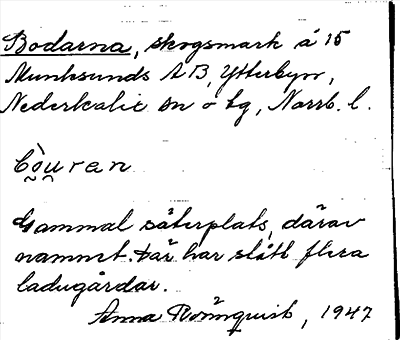 Bodarna, skogsmark å 15
Munksunds A B, Ytterbyn,
Nederkalix sn o tg, Norrb. l.
Gammal säterplats, därav
namnet. Där har stått flera
ladugårdar.
Anna Rönnquist, 1947